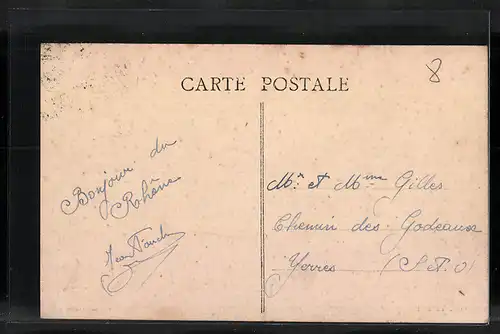 CARTE POSTALE
8
Bonjour du
Rhône
Mr et Mme Gilles
Chemin des Godeaux
Yerres (S et O)